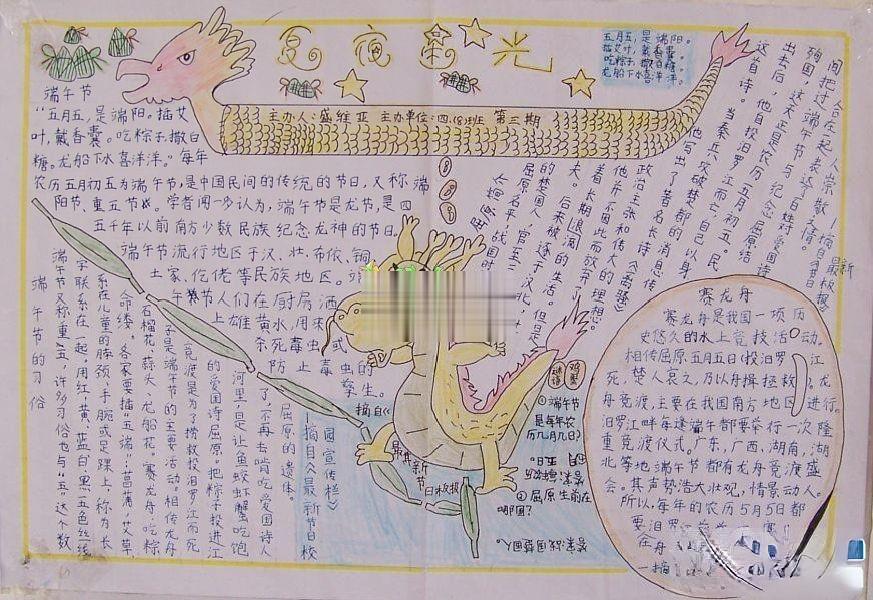 夏夜星光
五月五,是端阳。
插艾叶,戴香囊。
吃粽子,撒白糖。
龙船下水喜洋洋。
主办人:盛维亚 主办单位:四.(8)班 第三期
端午节
“五月五,是端阳。插艾
叶,戴香囊。吃粽子,撒白
糖。龙船下水喜洋洋。”每年
农历五月初五为端午节,是中国民间的传统的节日,又称端
阳节、重五节
学者闻一多认为,端午节是龙节,是四
五千年以前南方少数民族纪念龙神的节日。
端午节流行地区于汉、壮、布依、侗
土家、仡佬等民族地区。
午节人们在厨房洒
上雄黄水,用来
杀死毒虫或
防止毒虫的
孳生。
摘自《
最新
节日
校报
端午节的习俗
端午节又称重五,许多习俗也与“五”这个数
字联系在一起。用红、黄、蓝、白、黑五色丝线
系在儿童的脖颈、手腕或足踝上,称为长
命缕。各家要插“五端”:菖蒲、艾草、
石榴花、蒜头、龙船花。赛龙舟、吃粽
子是端午节的主要活动。相传龙舟
竞渡是为了捞救投汨罗江而死
的爱国诗屈原。把粽子投进江
河里,是让鱼蛟虾蟹吃饱
了,不再去啃吃爱国诗人
屈原的遗体。
摘自《最新节日校
园宣传栏》
屈原
屈原名平,战国时
的楚国人,官至三
夫。后来被逐于汉北,
着长期浪涡的生活。但是
他并不因此而放弃了
政治主张和伟大的理想。
他写出了著名长诗《离骚》
当秦兵攻破楚都的消息传
出去后,他自投汨罗江而亡,自己以身
殉国。这天正是农历五月初五,民
间把过端午节与纪念屈原结
合在一起,表达了百姓对爱国诗
人崇敬之情。
谜语
鸡蛋
①端午节
是每年农
历几月几日?
②屈原生前在
哪国?
赛龙舟
赛龙舟是我国一项历
史悠久的水上竞技活动。
相传屈原五月五日投汨罗江
死,楚人哀之,乃以舟楫拯救。龙
舟竞渡,主要在我国南方地区进行。
汨罗江畔每逢端午都要举行一次隆
重竞渡仪式。广东,广西,湖南,湖
北等地端午节都有龙舟竞渡盛
会。其声势浩大壮观,情景动人。
所以,每年的农历5月5日都
要汨罗江
在舟
一摘